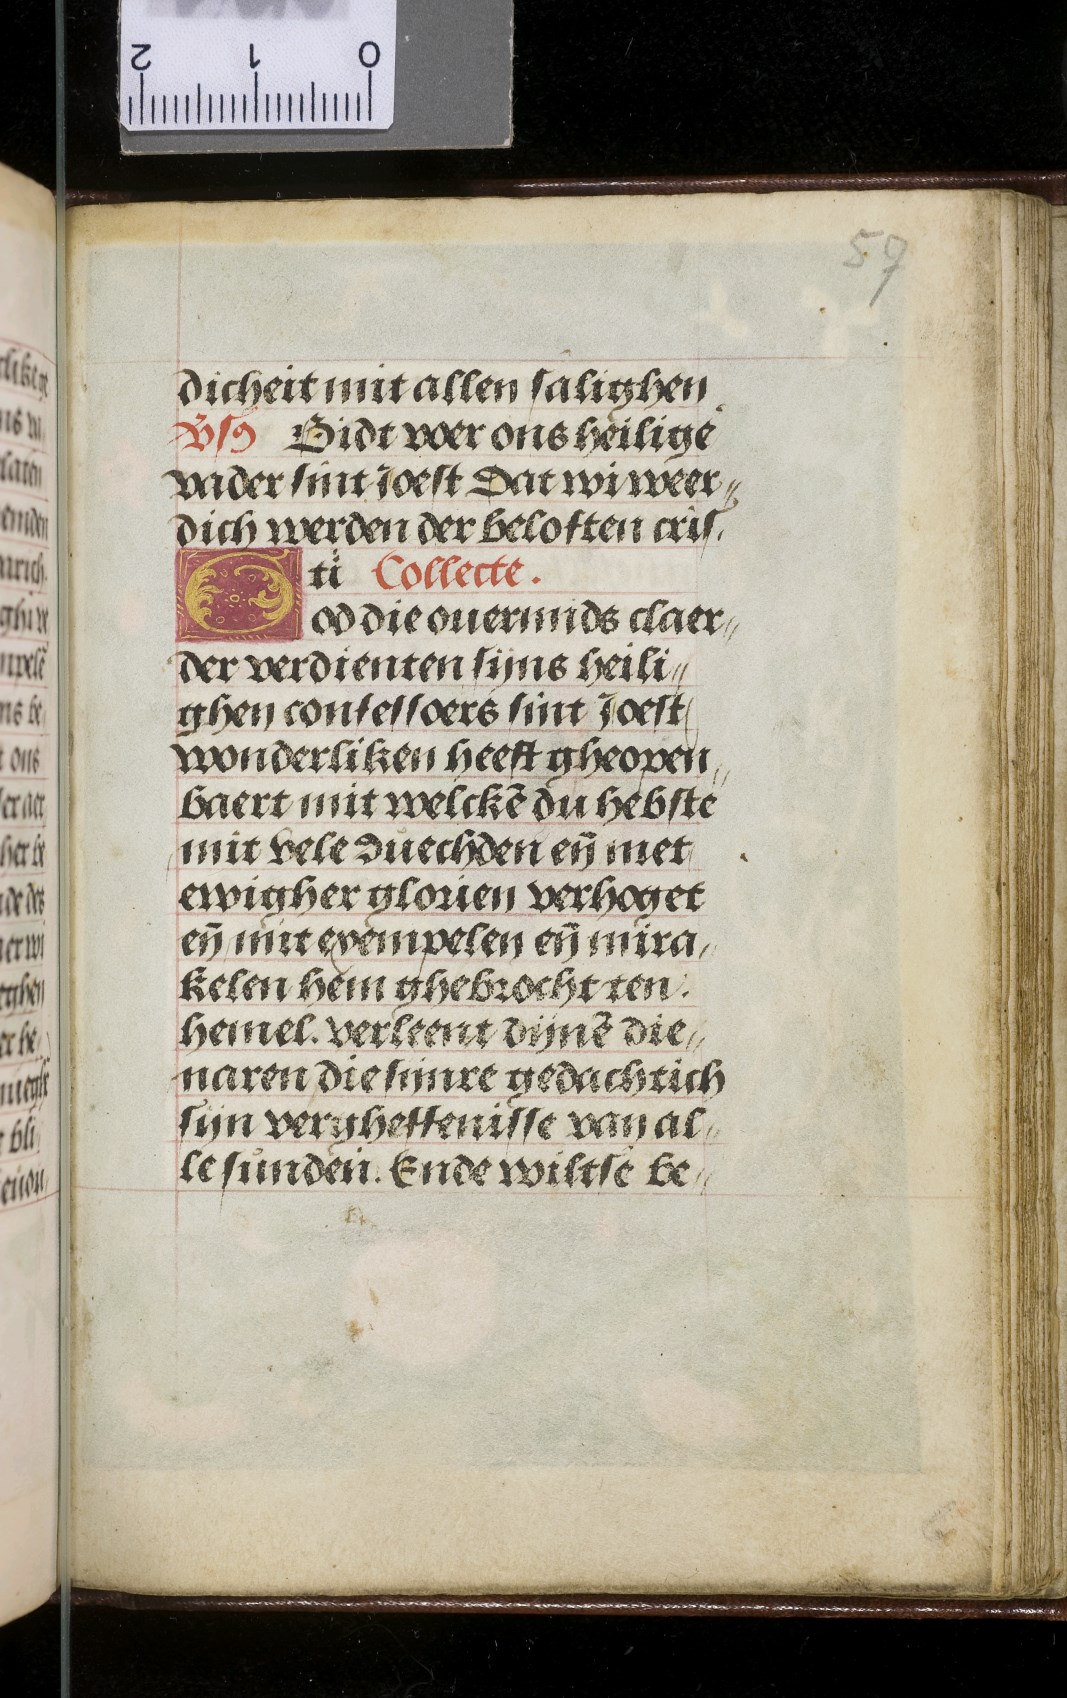 2 1 0
57
dicheit mit allen salighen
Vs9 Bidt voer ons heilige
vader sint Joest Dat wi weer„
dich werden der beloften cris„
ti Collecte.
God die ouermids claer„
der verdienten sijns heili„
ghen confessoers sint Joest
wonderliken heeft gheopen„
baert mit welckē du hebste
mit vele duechden eñ met
ewigher glorien verhoget
eñ mit exempelen eñ mira„
kelen hem ghebrocht ten
hemel. verleent dijnē die„
naren die sijnre gedachtich
sijn vergheffenisse van al„
le sunden. Ende wiltse be„